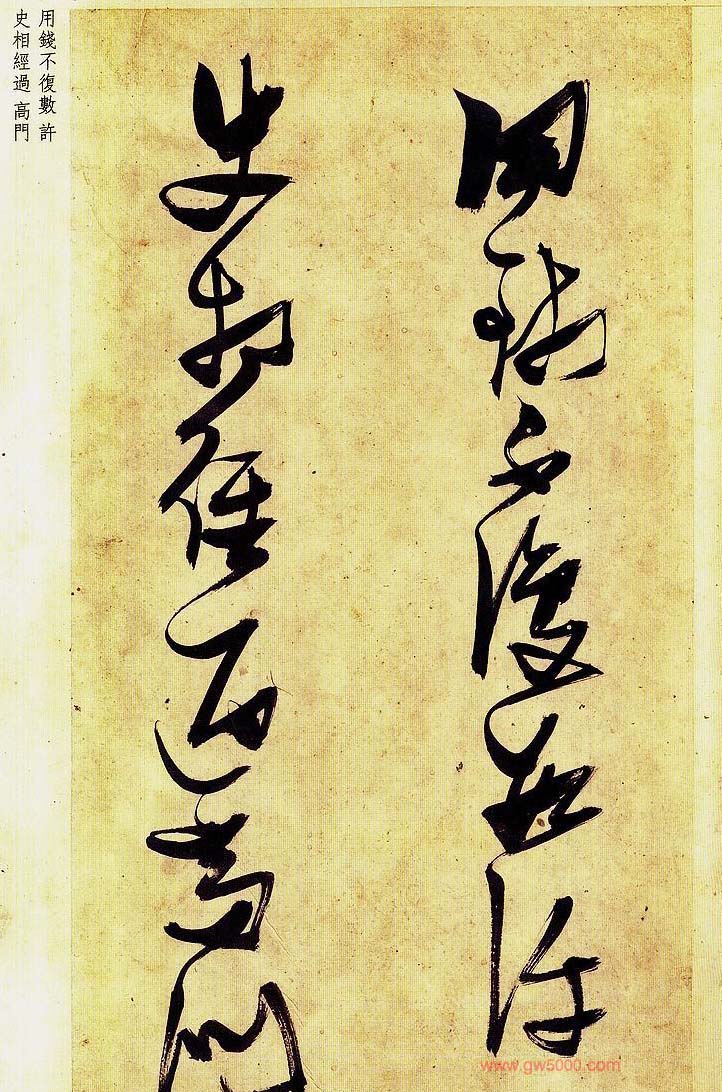 用錢不復數 許
史相經過 高門
用錢不復數許
史相經過高門
www.gw5000.com